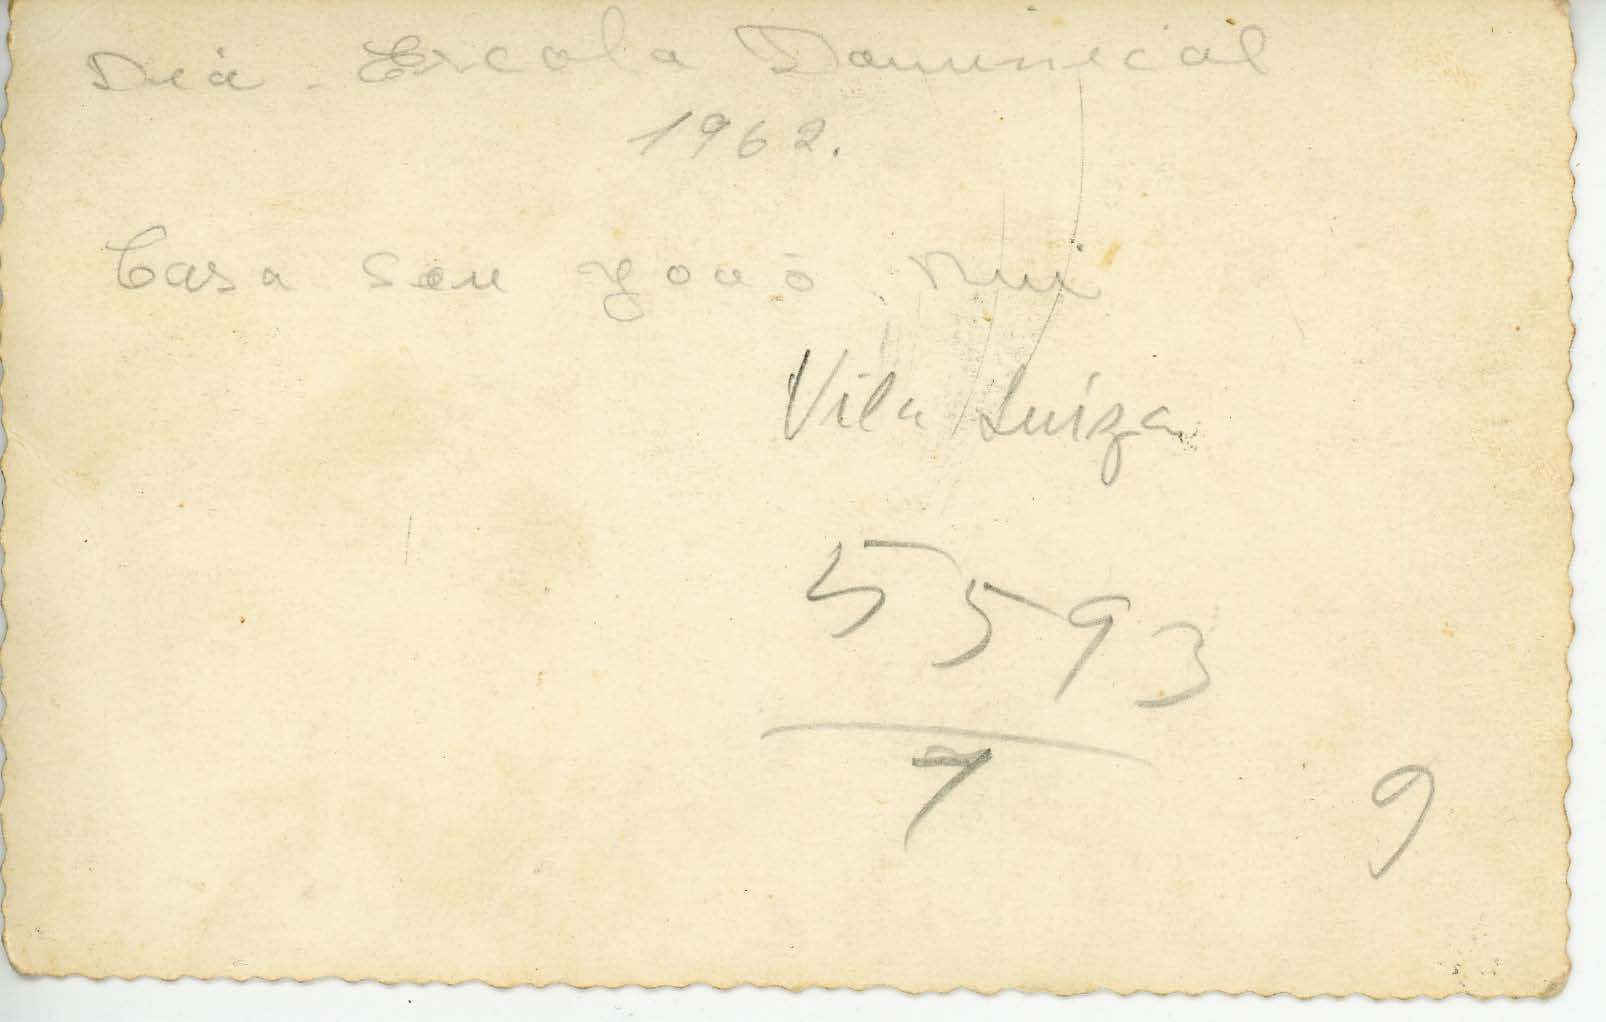 Dia - Escola Dominical
1962.
Casa Seu João Rui
Vila Luiza
5593
7
9